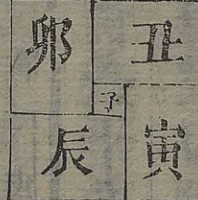 丑
寅
子
卯
辰